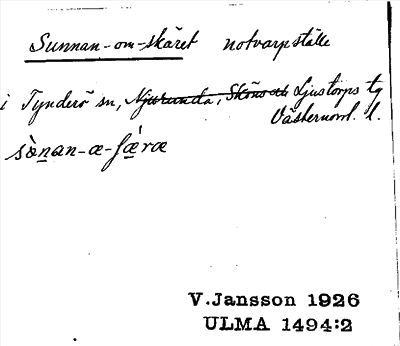 Sunnan-om-skäret notvarpställe
i Tynderö sn, Njurunda, Sköns o Ljustorps tg
Västernorrl. l.
sònan-æ-ʃǽræ
V.Jansson 1926
ULMA 1494:2